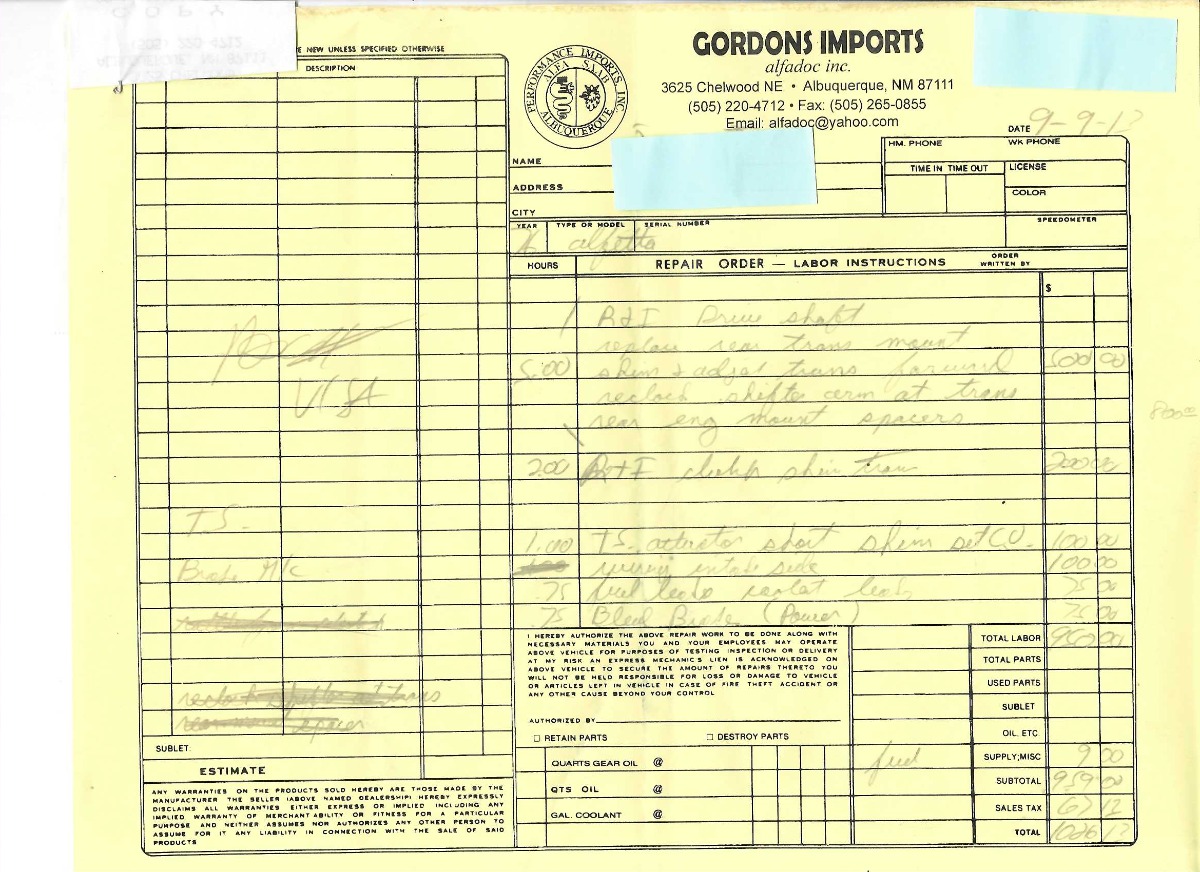 COPY
(505) 220-4712
E NEW UNLESS SPECIFIED OTHERWISE
DESCRIPTION
PERFORMANCE IMPORTS, INC.
ALFA SAAB
ALBUQUERQUE
GORDONS IMPORTS
alfadoc inc.
3625 Chelwood NE • Albuquerque, NM 87111
(505) 220-4712 • Fax: (505) 265-0855
Email: alfadoc@yahoo.com
DATE 9-9-13
NAME
HM. PHONE WK PHONE
ADDRESS
TIME IN TIME OUT LICENSE
COLOR
CITY
YEAR TYPE OR MODEL SERIAL NUMBER SPEEDOMETER
alfetta
HOURS REPAIR ORDER — LABOR INSTRUCTIONS ORDER WRITTEN BY
$
R&I Drive shaft
replace rear trans mount
5.00 shim & adjst trans forward 500 00
replace shifter arm at trans
rear eng mount spacers
800.00
VISA
2.00 R+I shim tran 200 00
T.S.
1.00 T.S. short shim set CO. 100 00
Brake M/c
wiring intake side 100 00
.75 fuel leads 75 00
.75 Bleed Brakes (Power) 75 00
I HEREBY AUTHORIZE THE ABOVE REPAIR WORK TO BE DONE ALONG WITH
NECESSARY MATERIALS YOU AND YOUR EMPLOYEES MAY OPERATE
ABOVE VEHICLE FOR PURPOSES OF TESTING INSPECTION OR DELIVERY
AT MY RISK AN EXPRESS MECHANICS LIEN IS ACKNOWLEDGED ON
ABOVE VEHICLE TO SECURE THE AMOUNT OF REPAIRS THERETO YOU
WILL NOT BE HELD RESPONSIBLE FOR LOSS OR DAMAGE TO VEHICLE
OR ARTICLES LEFT IN VEHICLE IN CASE OF FIRE THEFT ACCIDENT OR
ANY OTHER CAUSE BEYOND YOUR CONTROL
AUTHORIZED BY
☐ RETAIN PARTS ☐ DESTROY PARTS
TOTAL LABOR 950.00
TOTAL PARTS
USED PARTS
SUBLET
OIL, ETC.
SUBLET:
ESTIMATE
QUARTS GEAR OIL @
QTS OIL @
GAL. COOLANT @
fuel SUPPLY;MISC 9.00
SUBTOTAL 959.00
SALES TAX 67 13
TOTAL 1026 13
ANY WARRANTIES ON THE PRODUCTS SOLD HEREBY ARE THOSE MADE BY THE
MANUFACTURER THE SELLER (ABOVE NAMED DEALERSHIP) HEREBY EXPRESSLY
DISCLAIMS ALL WARRANTIES EITHER EXPRESS OR IMPLIED INCLUDING ANY
IMPLIED WARRANTY OF MERCHANTABILITY OR FITNESS FOR A PARTICULAR
PURPOSE AND NEITHER ASSUMES NOR AUTHORIZES ANY OTHER PERSON TO
ASSUME FOR IT ANY LIABILITY IN CONNECTION WITH THE SALE OF SAID
PRODUCTS